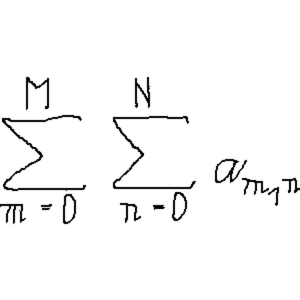 \sum_{m=0}^{M} \sum_{n=0}^{N} a_{m,n}